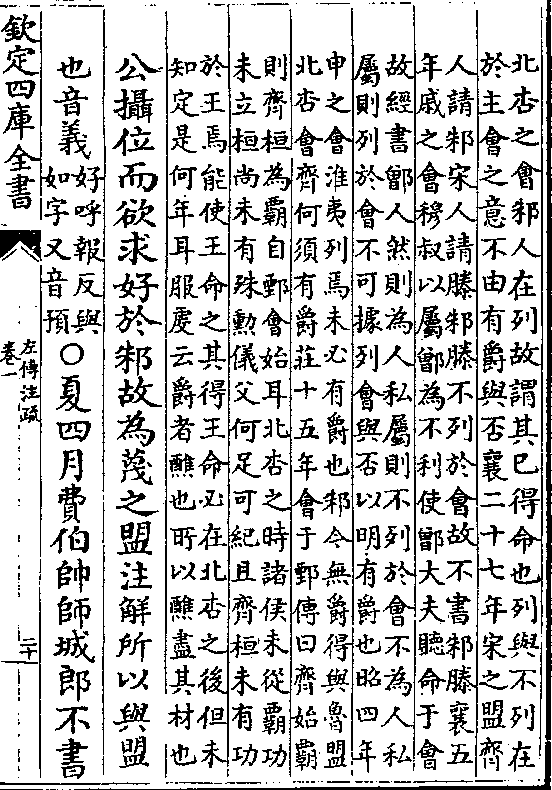 北杏之會邾人在列故謂其已得命也列與不列在
於主會之意不由有爵與否襄二十七年宋之盟齊
人請邾宋人請滕邾滕不列於會故不書邾滕襄五
年戚之會穆叔以屬鄫為不利使鄫大夫聽命于會
故經書鄫人然則為人私屬則不列於會不為人私
屬則列於會不可據列會與否以明有爵也昭四年
申之會淮夷列焉未必有爵也邾今無爵得與魯盟
北杏會齊何須有爵莊十五年會于鄄傳曰齊始霸
則齊桓為霸自鄄會始耳北杏之時諸侯未從霸功
未立桓尚未有殊勲儀父何足可紀且齊桓未有功
於王焉能使王命之其得王命必在北杏之後但未
知定是何年耳服虔云爵者醮也所以醮盡其材也
公攝位而欲求好於邾故為蔑之盟注解所以與盟
也音義好呼報反與如字又音預○夏四月費伯帥師城郎不書
欽定四庫全書
左傳注疏
卷一
二十